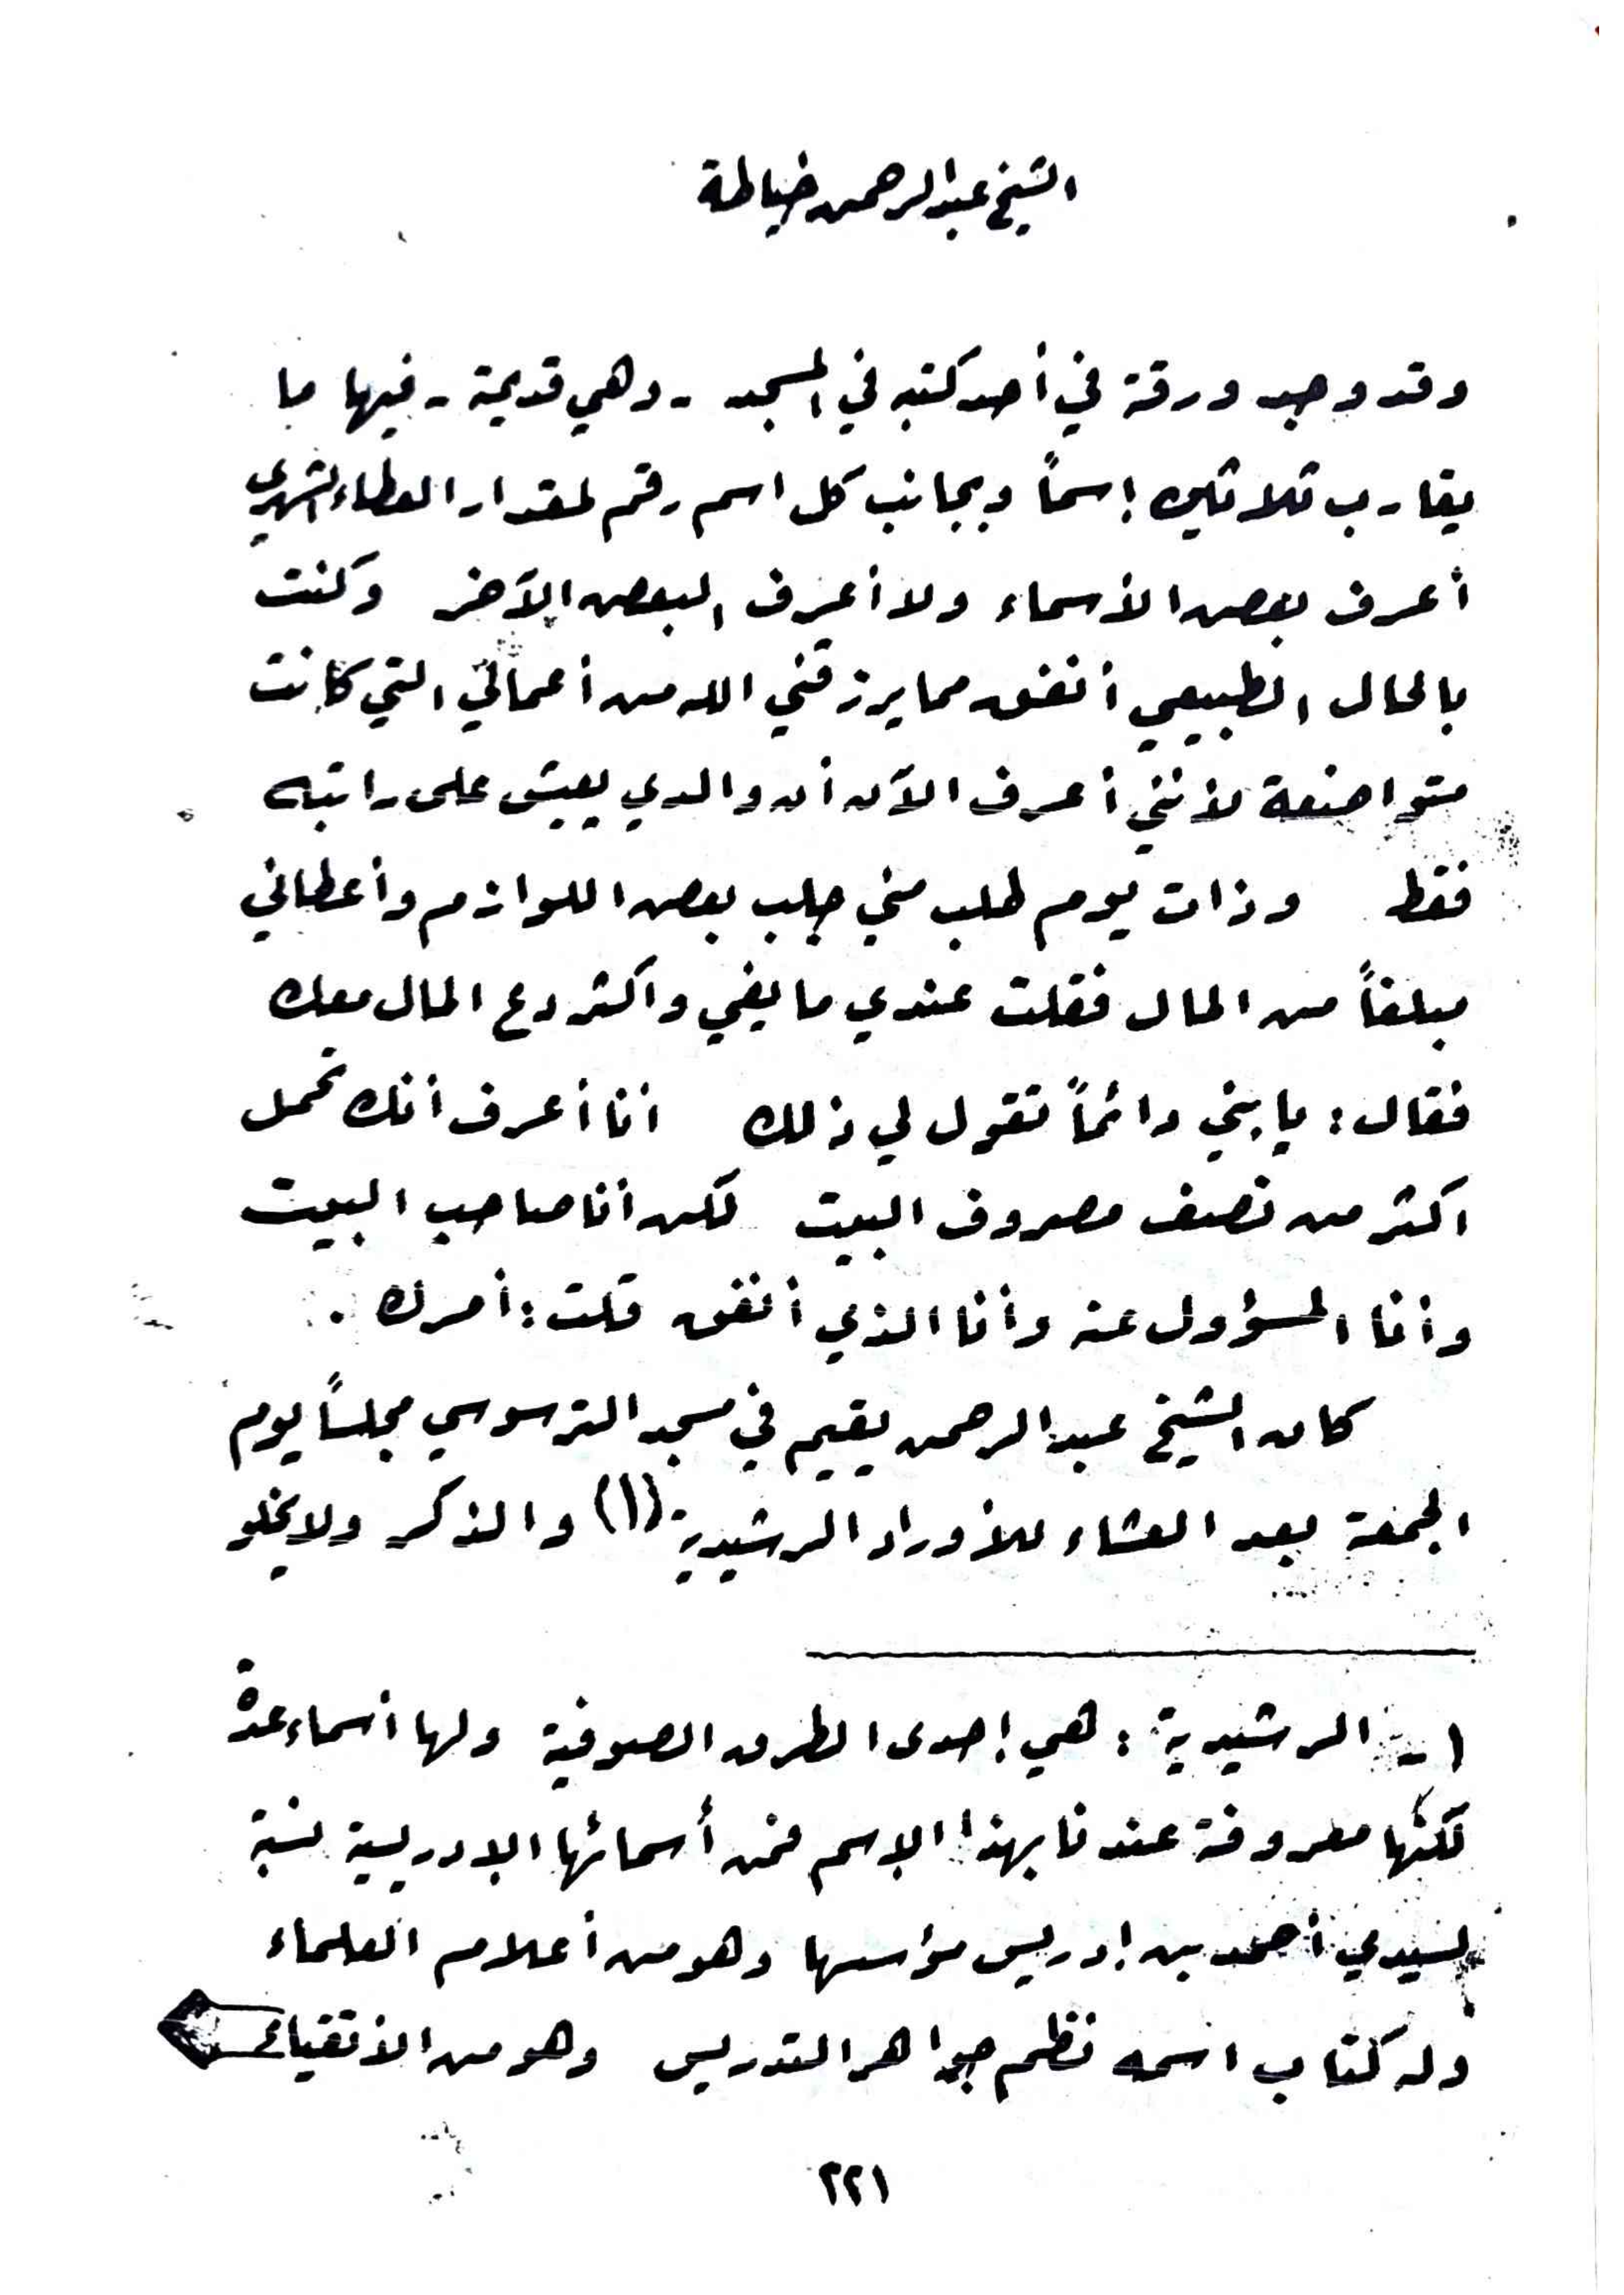 الشيخ عبد الرحمن خياطة
وقد وجد ورقة في أحد كتبه في المسجد - وهي قديمة - فيها ما
يقارب ثلاثين إسماً وبجانب كل اسم رقم لمقدار العطاء الشهري
أعرف بعض الأسماء ولا أعرف البعض الآخر وكنت
بالحال الطبيعي أنفق مما يرزقني الله من أعمالي التي كانت
متواضعة لأنني أعرف الآن أن والدي يعيش على راتبه
فقط وذات يوم طلب مني جلب بعض اللوازم وأعطاني
مبلغاً من المال فقلت عندي ما يفي واكثر دع المال معك
فقال : يا بني دائماً تقول لي ذلك أنا أعرف أنك تحمل
اكثر من نصف مصروف البيت لكن أنا صاحب البيت
وأنا المسؤول عنه وأنا الذي أنفق قلت : أمرك .
كان الشيخ عبد الرحمن يقيم في مسجد الترسوسي مجلساً يوم
الجمعة بعد العشاء للأوراد الرشيدية (١) والذكر ولا يخلو
١ - الرشيدية : هي إحدى الطرق الصوفية ولها أسماء عدة
لكنها معروفة عندنا بهذا الإسم فمن أسمائها الإدريسية نسبة
لسيدي أحمد بن إدريس مؤسسها وهو من أعلام العلماء
وله كتاب اسمه نظم جواهر التدريس وهو من الأتقياء
٢٢١